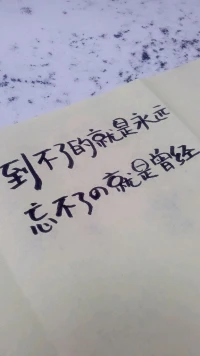 到不了的就是永远
忘不了の就是曾经